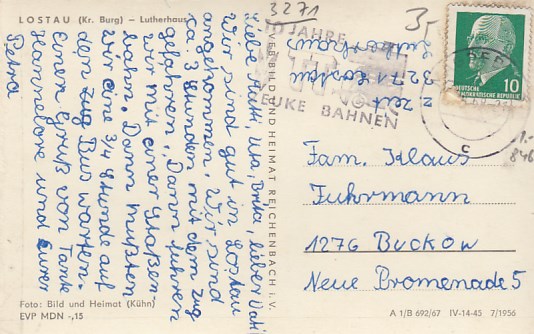 LOSTAU (Kr. Burg) – Lutherhaus
Liebe Mutti, Uta, Britta, lieber Vati!
Wir sind gut in Lostau
angekommen. Wir sind
ca. 3 Stunden mit dem Zug
gefahren. Dann fuhren
wir mit einer Straßen
bahn. Dann mußten
wir eine 3/4 Stunde auf
den Zug Bus warten.
Einen Gruß von Tante
Hannelore und eurer
Petra
Foto: Bild und Heimat (Kühn)
EVP MDN -,15
VEB BILD UND HEIMAT REICHENBACH i. V.
3271
z. Zeit
3271 Lostau
Lutherhaus
JAHRE
BAHNEN
10
DEUTSCHE
DEMOKRATISCHE REPUBLIK
c
1.-
846
Fam. Klaus
Fuhrmann
1276 Buckow
Neue Promenade 5
A 1/B 692/67 IV-14-45 7/1956